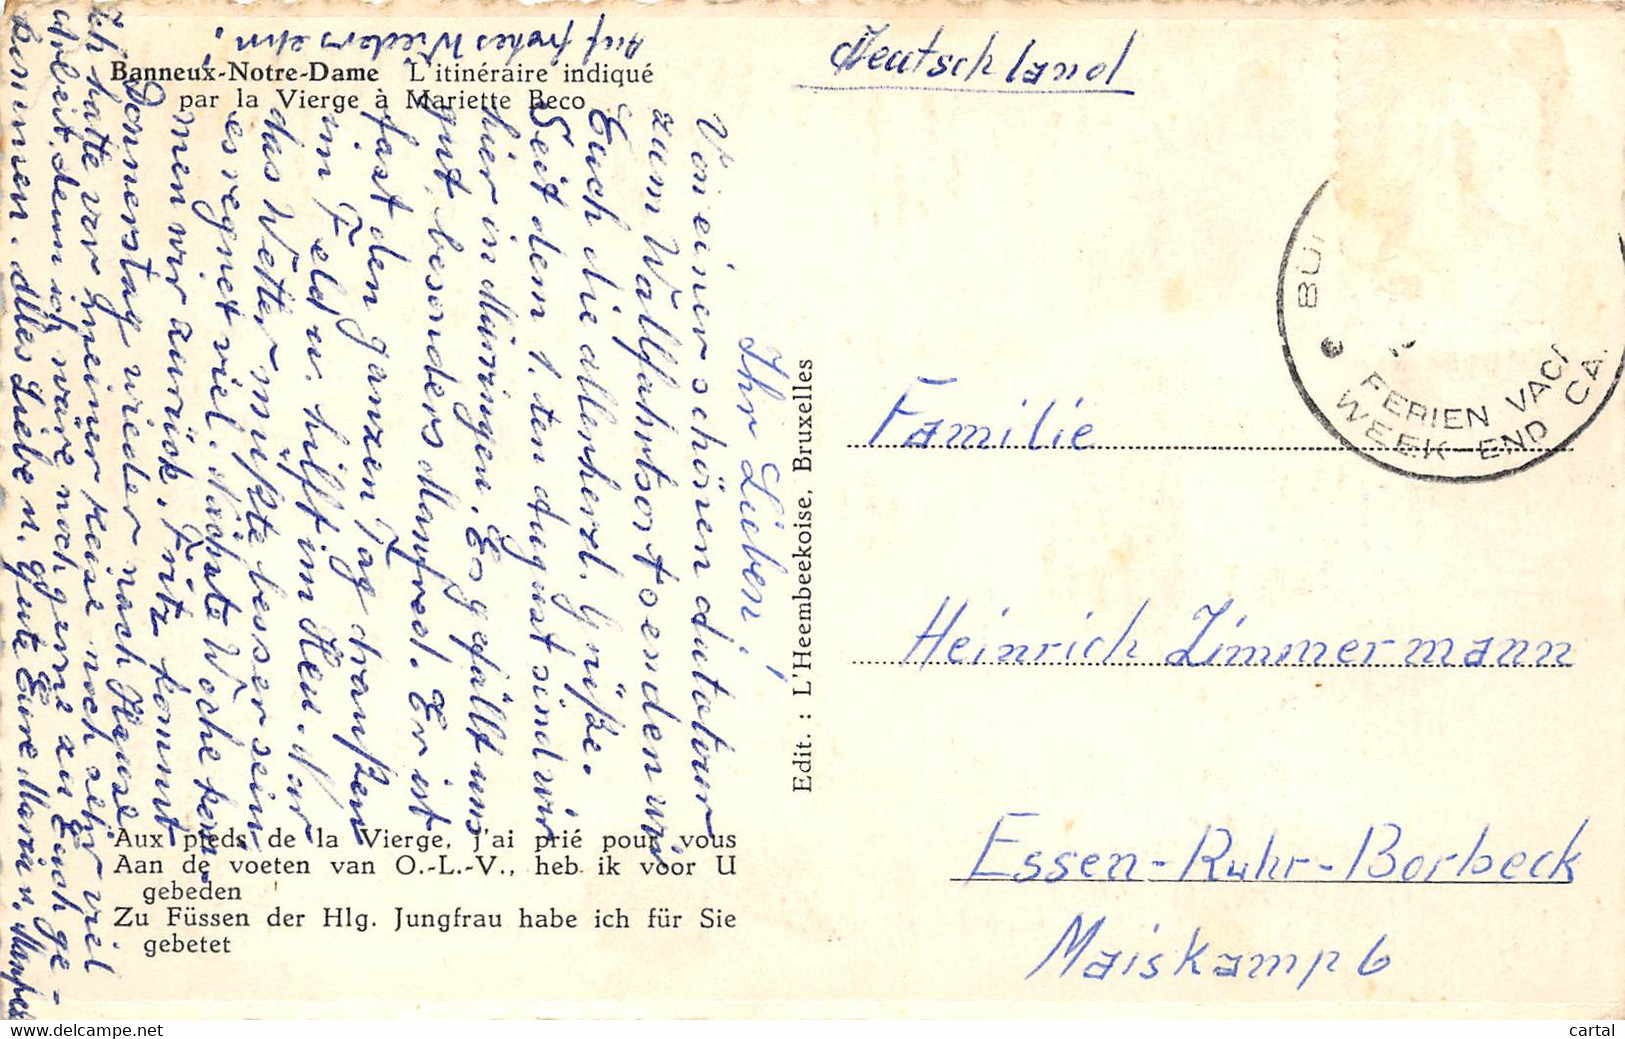 Deutschland
Banneux-Notre-Dame L'itinéraire indiqué
par la Vierge à Mariette Beco
Ihr Lieben!
Von einer schönen Autotour
zum Wallfahrtsort senden wir
Euch die allerherzl. Grüße.
Seit dem 1. ten August sind wir
hier in Mürringen. Es gefällt uns
gut, besonders Manfred. Er ist
fast den ganzen Tag draußen
im Feld u. hilft im Heu. Nur
das Wetter müßte besser sein
es regnet viel. Nächste Woche kom
men wir zurück. Fritz kommt
Donnerstag wieder nach Hause
Ich hatte vor meiner Reise noch sehr viel
Arbeit, denn ich wäre noch gerne zu Euch ge-
kommen. Alles Liebe u. Gute Eure Maria u. Manfred
Auf frohes Wiedersehn!
Aux pieds de la Vierge, j'ai prié pour vous
Aan de voeten van O.-L.-V., heb ik voor U
gebeden
Zu Füssen der Hlg. Jungfrau habe ich für Sie
gebetet
Edit. : L'Heembeekoise, Bruxelles
BÜ
FERIEN VAC
WEEK-END CA
Familie
Heinrich Zimmermann
Essen-Ruhr-Borbeck
Maiskamp 6
delcampe.net
cartal